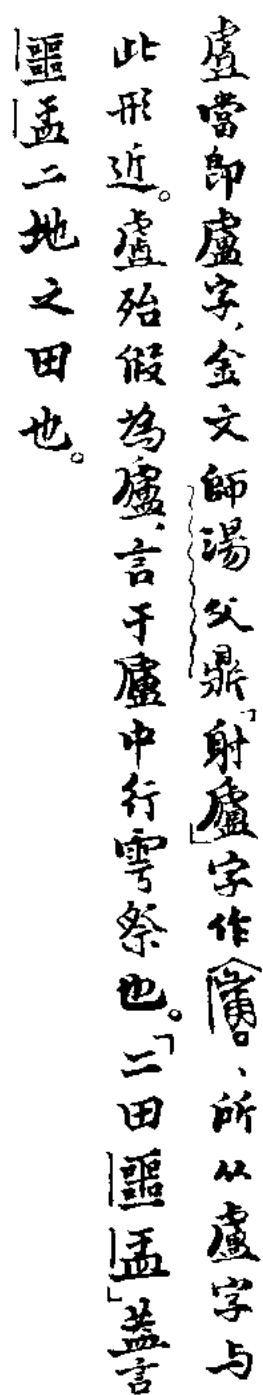 當即盧字，金文師湯父鼎「射廬」字作、所从盧字与
此形近。殆假為廬，言于廬中行雩祭也。「二田噩盂」蓋言
噩盂二地之田也。